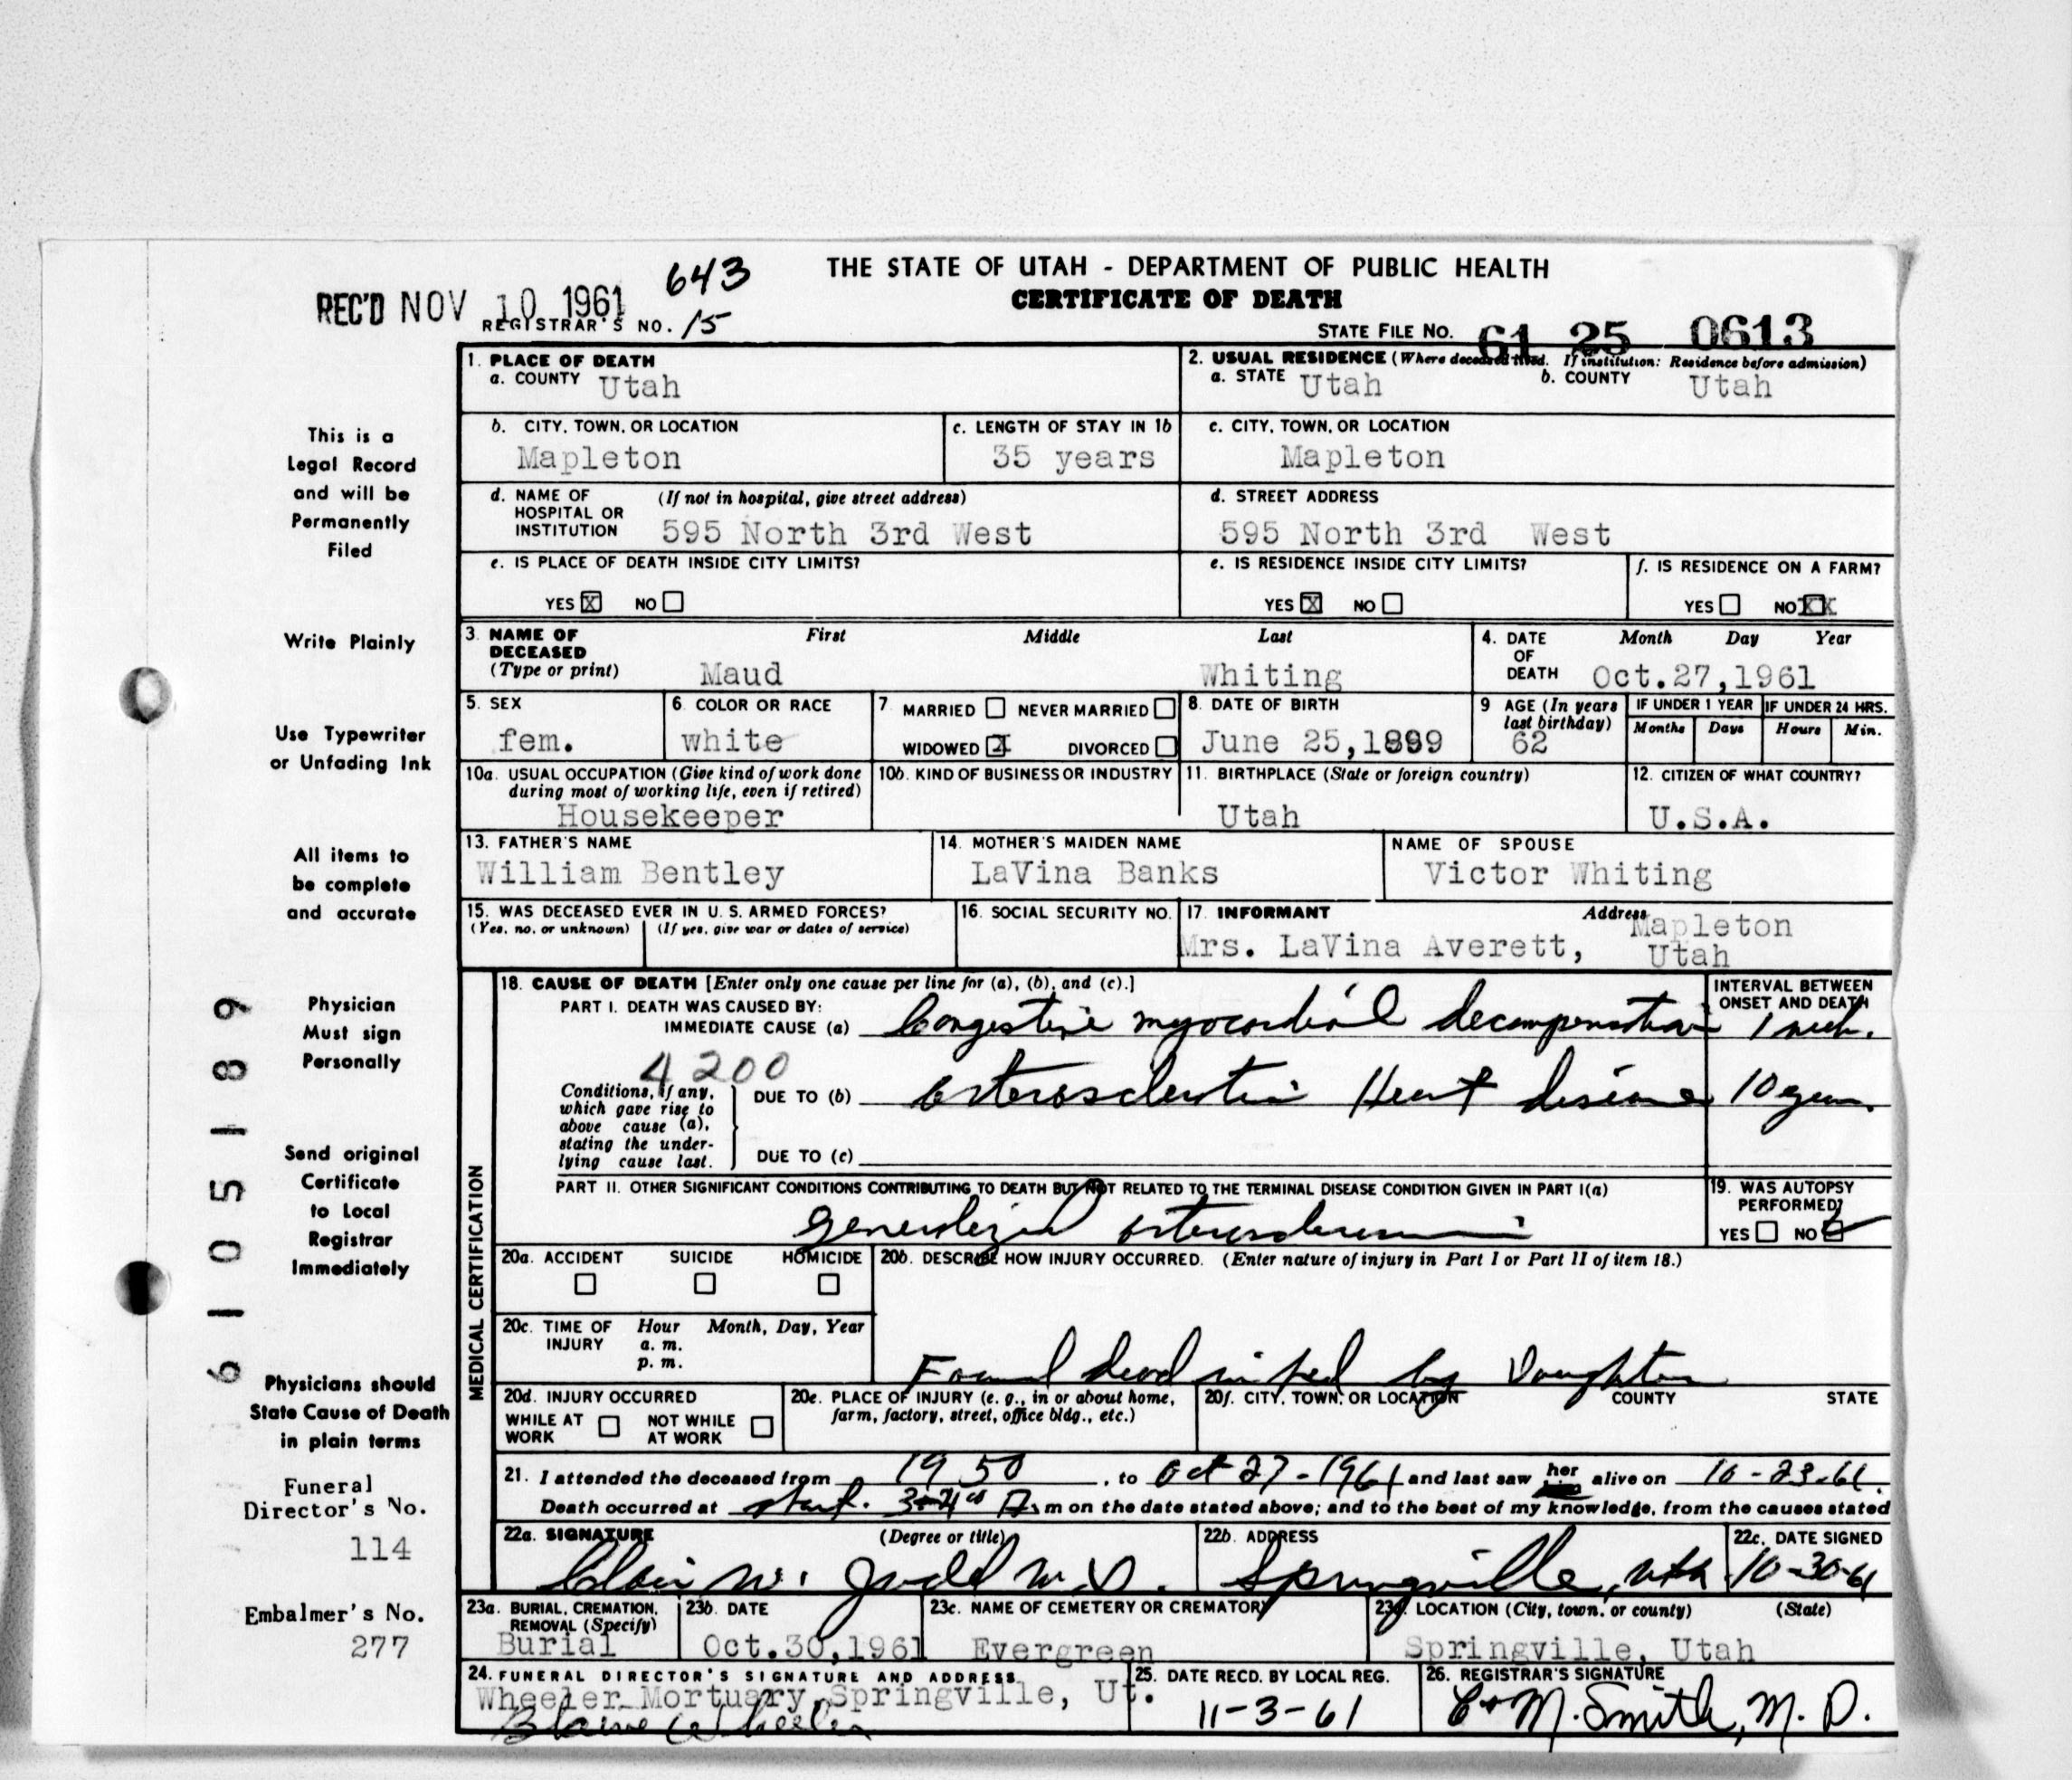 643
THE STATE OF UTAH - DEPARTMENT OF PUBLIC HEALTH
CERTIFICATE OF DEATH
REC'D NOV 10 1961
REGISTRAR'S NO. 15
STATE FILE NO. 61 25 0613
1. PLACE OF DEATH
a. COUNTY Utah
2. USUAL RESIDENCE (Where deceased lived. If institution: Residence before admission)
a. STATE Utah b. COUNTY Utah
b. CITY, TOWN, OR LOCATION
Mapleton
c. LENGTH OF STAY IN 1b
35 years
c. CITY, TOWN, OR LOCATION
Mapleton
d. NAME OF HOSPITAL OR INSTITUTION (If not in hospital, give street address)
595 North 3rd West
d. STREET ADDRESS
595 North 3rd West
e. IS PLACE OF DEATH INSIDE CITY LIMITS?
YES X NO
e. IS RESIDENCE INSIDE CITY LIMITS?
YES X NO
f. IS RESIDENCE ON A FARM?
YES NO XX
3. NAME OF DECEASED (Type or print)
First Middle Last
Maud Whiting
4. DATE OF DEATH Month Day Year
Oct.27,1961
5. SEX
fem.
6. COLOR OR RACE
white
7. MARRIED NEVER MARRIED
WIDOWED X DIVORCED
8. DATE OF BIRTH
June 25,1899
9 AGE (In years last birthday)
62
IF UNDER 1 YEAR
Months Days
IF UNDER 24 HRS.
Hours Min.
10a. USUAL OCCUPATION (Give kind of work done during most of working life, even if retired)
Housekeeper
10b. KIND OF BUSINESS OR INDUSTRY
11. BIRTHPLACE (State or foreign country)
Utah
12. CITIZEN OF WHAT COUNTRY?
U.S.A.
13. FATHER'S NAME
William Bentley
14. MOTHER'S MAIDEN NAME
LaVina Banks
NAME OF SPOUSE
Victor Whiting
15. WAS DECEASED EVER IN U.S. ARMED FORCES?
(Yes, no, or unknown) (If yes, give war or dates of service)
16. SOCIAL SECURITY NO.
17. INFORMANT Address
Mrs. LaVina Averett, Mapleton Utah
MEDICAL CERTIFICATION
18. CAUSE OF DEATH [Enter only one cause per line for (a), (b), and (c).]
INTERVAL BETWEEN ONSET AND DEATH
PART I. DEATH WAS CAUSED BY:
IMMEDIATE CAUSE (a) Congestive myocardial decompensation 1 week.
4200
Conditions, if any, which gave rise to above cause (a), stating the underlying cause last.
DUE TO (b) Arteriosclerotic Heart disease 10 years.
DUE TO (c)
PART II. OTHER SIGNIFICANT CONDITIONS CONTRIBUTING TO DEATH BUT NOT RELATED TO THE TERMINAL DISEASE CONDITION GIVEN IN PART I(a)
generalized arteriosclerosis
19. WAS AUTOPSY PERFORMED?
YES NO
20a. ACCIDENT SUICIDE HOMICIDE
20b. DESCRIBE HOW INJURY OCCURRED. (Enter nature of injury in Part I or Part II of item 18.)
20c. TIME OF INJURY Hour Month, Day, Year
a. m.
p. m.
Found dead in bed by Daughter
20d. INJURY OCCURRED
WHILE AT WORK NOT WHILE AT WORK
20e. PLACE OF INJURY (e. g., in or about home, farm, factory, street, office bldg., etc.)
20f. CITY, TOWN, OR LOCATION COUNTY STATE
21. I attended the deceased from 1950, to Oct 27-1961 and last saw her alive on 10-23-61.
Death occurred at m on the date stated above; and to the best of my knowledge, from the causes stated
22a. SIGNATURE (Degree or title)
Clair W. Judd M.D.
22b. ADDRESS
Springville, Utah
22c. DATE SIGNED
10-30-61
23a. BURIAL, CREMATION, REMOVAL (Specify)
Burial
23b. DATE
Oct.30,1961
23c. NAME OF CEMETERY OR CREMATORY
Evergreen
23d. LOCATION (City, town, or county) (State)
Springville, Utah
24. FUNERAL DIRECTOR'S SIGNATURE AND ADDRESS
Wheeler Mortuary, Springville, Ut.
Blaine Wheeler
25. DATE RECD. BY LOCAL REG.
11-3-61
26. REGISTRAR'S SIGNATURE
M. Smith, M. D.
This is a
Legal Record
and will be
Permanently
Filed
Write Plainly
Use Typewriter
or Unfading Ink
All items to
be complete
and accurate
Physician
Must sign
Personally
Send original
Certificate
to Local
Registrar
Immediately
Physicians should
State Cause of Death
in plain terms
Funeral
Director's No.
114
Embalmer's No.
277
6105189